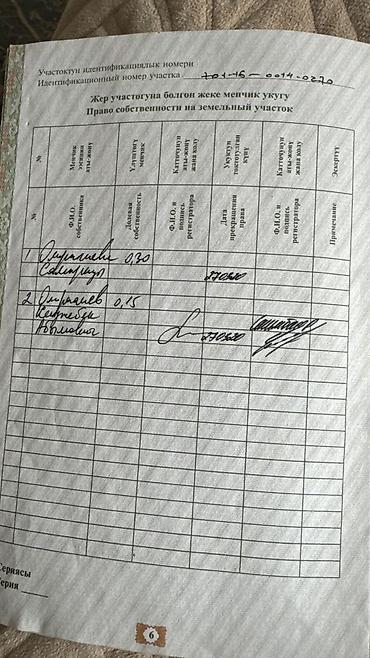 Участоктун идентификациялык номери
Идентификационный номер участка 701-15-0014-0270
Жер участогуна болгон жеке менчик укугу
Право собственности на земельный участок
№
Менчик ээсинин аты-жөнү
Үлүштүү менчик
Каттоочунун аты-жөнү жана колу
Укуктун токтотулган күнү
Каттоочунун аты-жөнү жана колу
Эскертүү
№
Ф.И.О. собственника
Долевая собственность
Ф.И.О. и подпись регистратора
Дата прекращения права
Ф.И.О. и подпись регистратора
Примечание
1 0,30
270520
2 0,15
270520
Сериясы
Серия
6